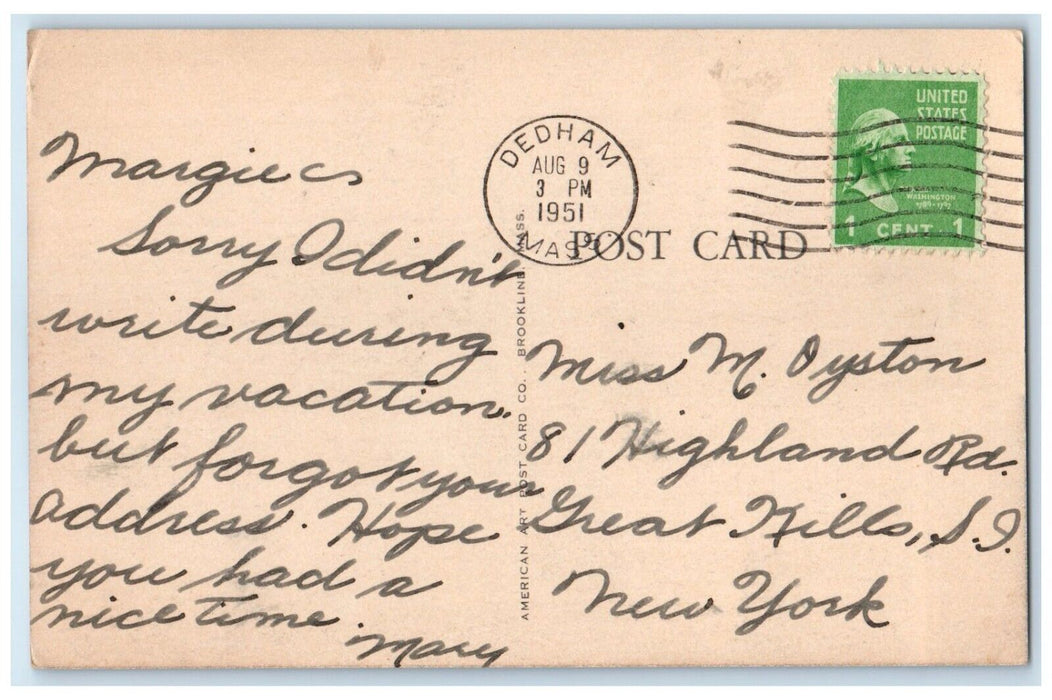 Margie
Sorry I didn't
write during
my vacation.
but forgot your
address. Hope
you had a
nice time.
Mary
DEDHAM
AUG 9
3 PM
1951
MASS
POST CARD
UNITED
STATES
POSTAGE
WASHINGTON
1789-1797
1 CENT 1
AMERICAN ART POST CARD CO., BROOKLINE, MASS.
Miss M. Oyston
81 Highland Rd.
Great Kills, S.I.
New York